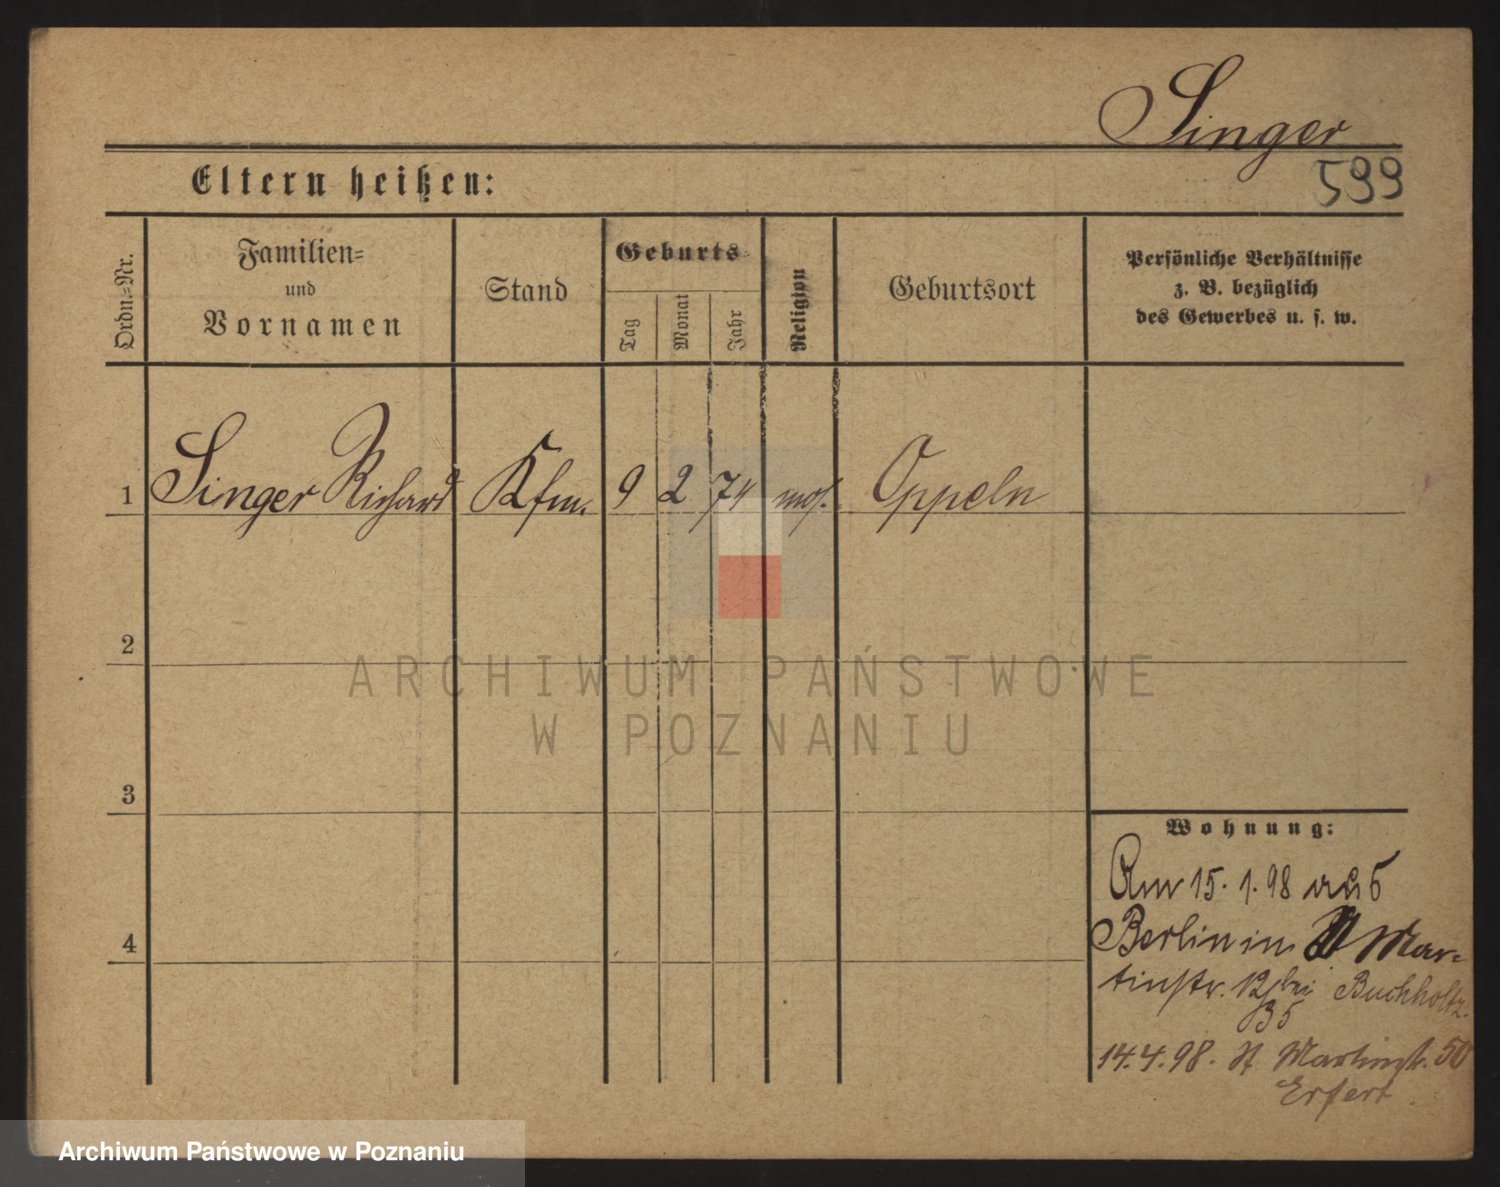 Singer
599
Eltern heißen:
Ordn.=Nr.
Familien=
und
Vornamen
Stand
Geburts=
Tag
Monat
Jahr
Religion
Geburtsort
Persönliche Verhältnisse
z. B. bezüglich
des Gewerbes u. s. w.
1 Singer Richard Kfm. 9 2 74 mos. Oppeln
2
3
4
Wohnung:
Am 15.1.98 aus
Berlin in St Mar=
tinstr. 12 bei Buchholtz.
14.4.98. St Martinstr. 50
Erfert
ARCHIWUM PAŃSTWOWE
W POZNANIU
Archiwum Państwowe w Poznaniu